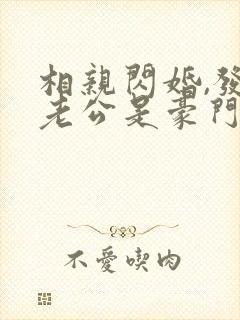 相親閃婚,發
老公是豪門
不愛喫肉